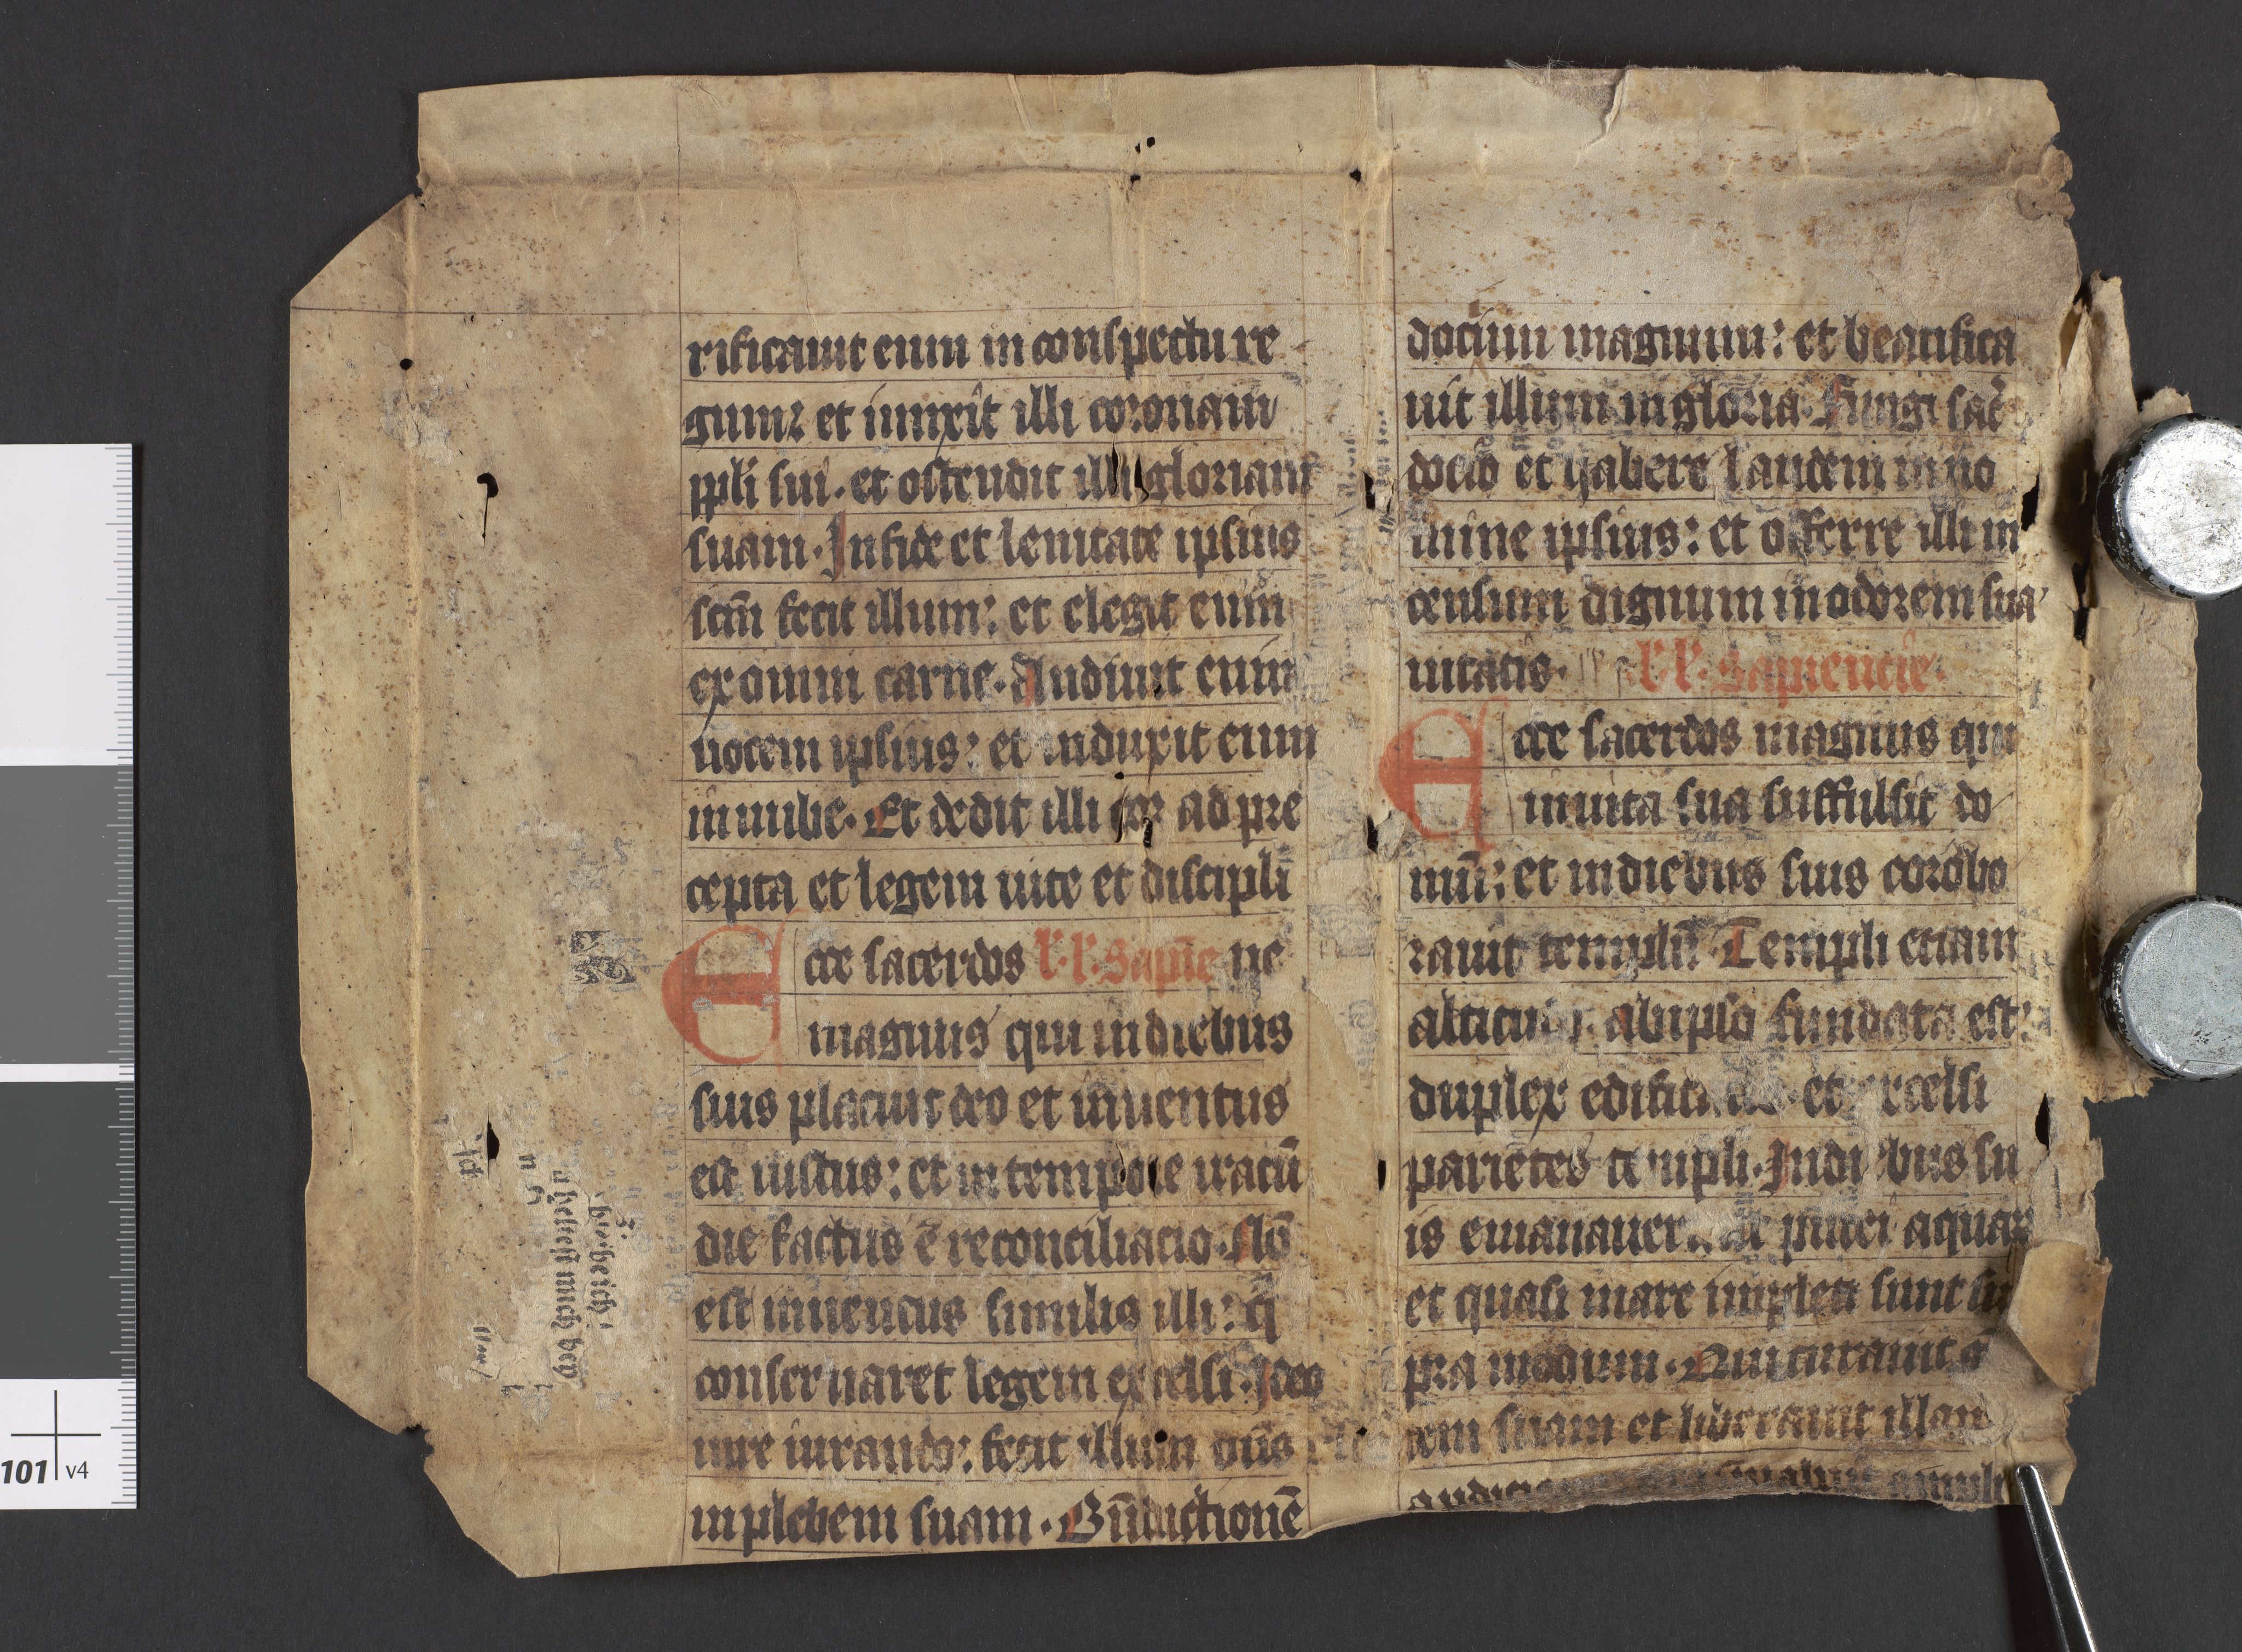 rificauit eum in conspectu re
gum: et iunxit illi coronam
ppli sui. et ostendit illi gloriam
suam. In fide et lenitate ipsius
scm̄ fecit illum: et elegit eum
ex omni carne. Audiuit enim
uocem ipsius: et induxit eum
in nube. Et dedit illi cor ad pre
cepta et legem uite et discipli
Ecce sacerdos l. l. Sapiē ne
magnus qui in diebus
suis placuit deo et inuentus
est iustus: et in tempore iracū
die factus ē reconciliacio. Nō
est inuentus similis illi: q̄
conseruaret legem excelsi. Ideo
iure iurando: fecit illum dn̄s
in plebem suam. Bn̄dictionē
docium magnum: et beatifica
uit illum in gloria. Fungi sac̄
docio et habere laudem in no
mine ipsius: et offerre illi in
censum dignum in odorem sua
uitatis. l. l. Sapiencie.
Ecce sacerdos magnus qui
in uita sua suffulsit do
mū: et in diebus suis corobo
rauit templū. Templi etiam
altitu abipso fundata est:
duplex edifica et excelsi
parietes templi. In diebus su
is emanauer putei aquar
et quasi mare impleti sunt su
pra modum. Qui curauit g
tem suam et liberauit illam
3.
b:o. be ich
helest mich bey
101 v4